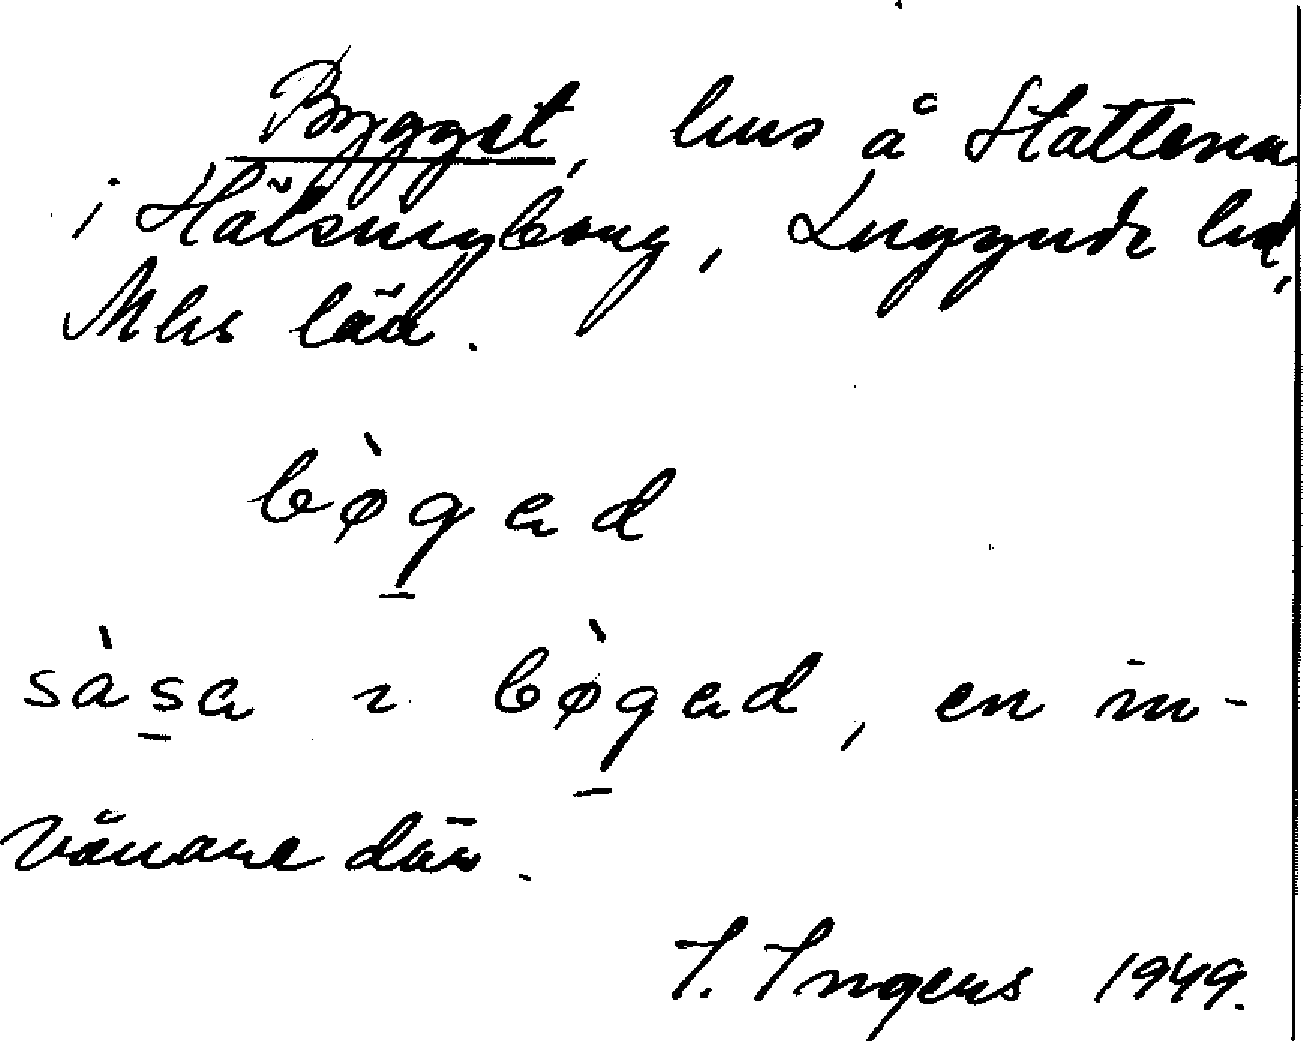 Bygget, hus å Slattena
i Hälsingborg, Luggude hd,
Mhs län.
bø̀gad
sàsa i bø̀gad, en in-
vånare där.
I. Ingers 1949.